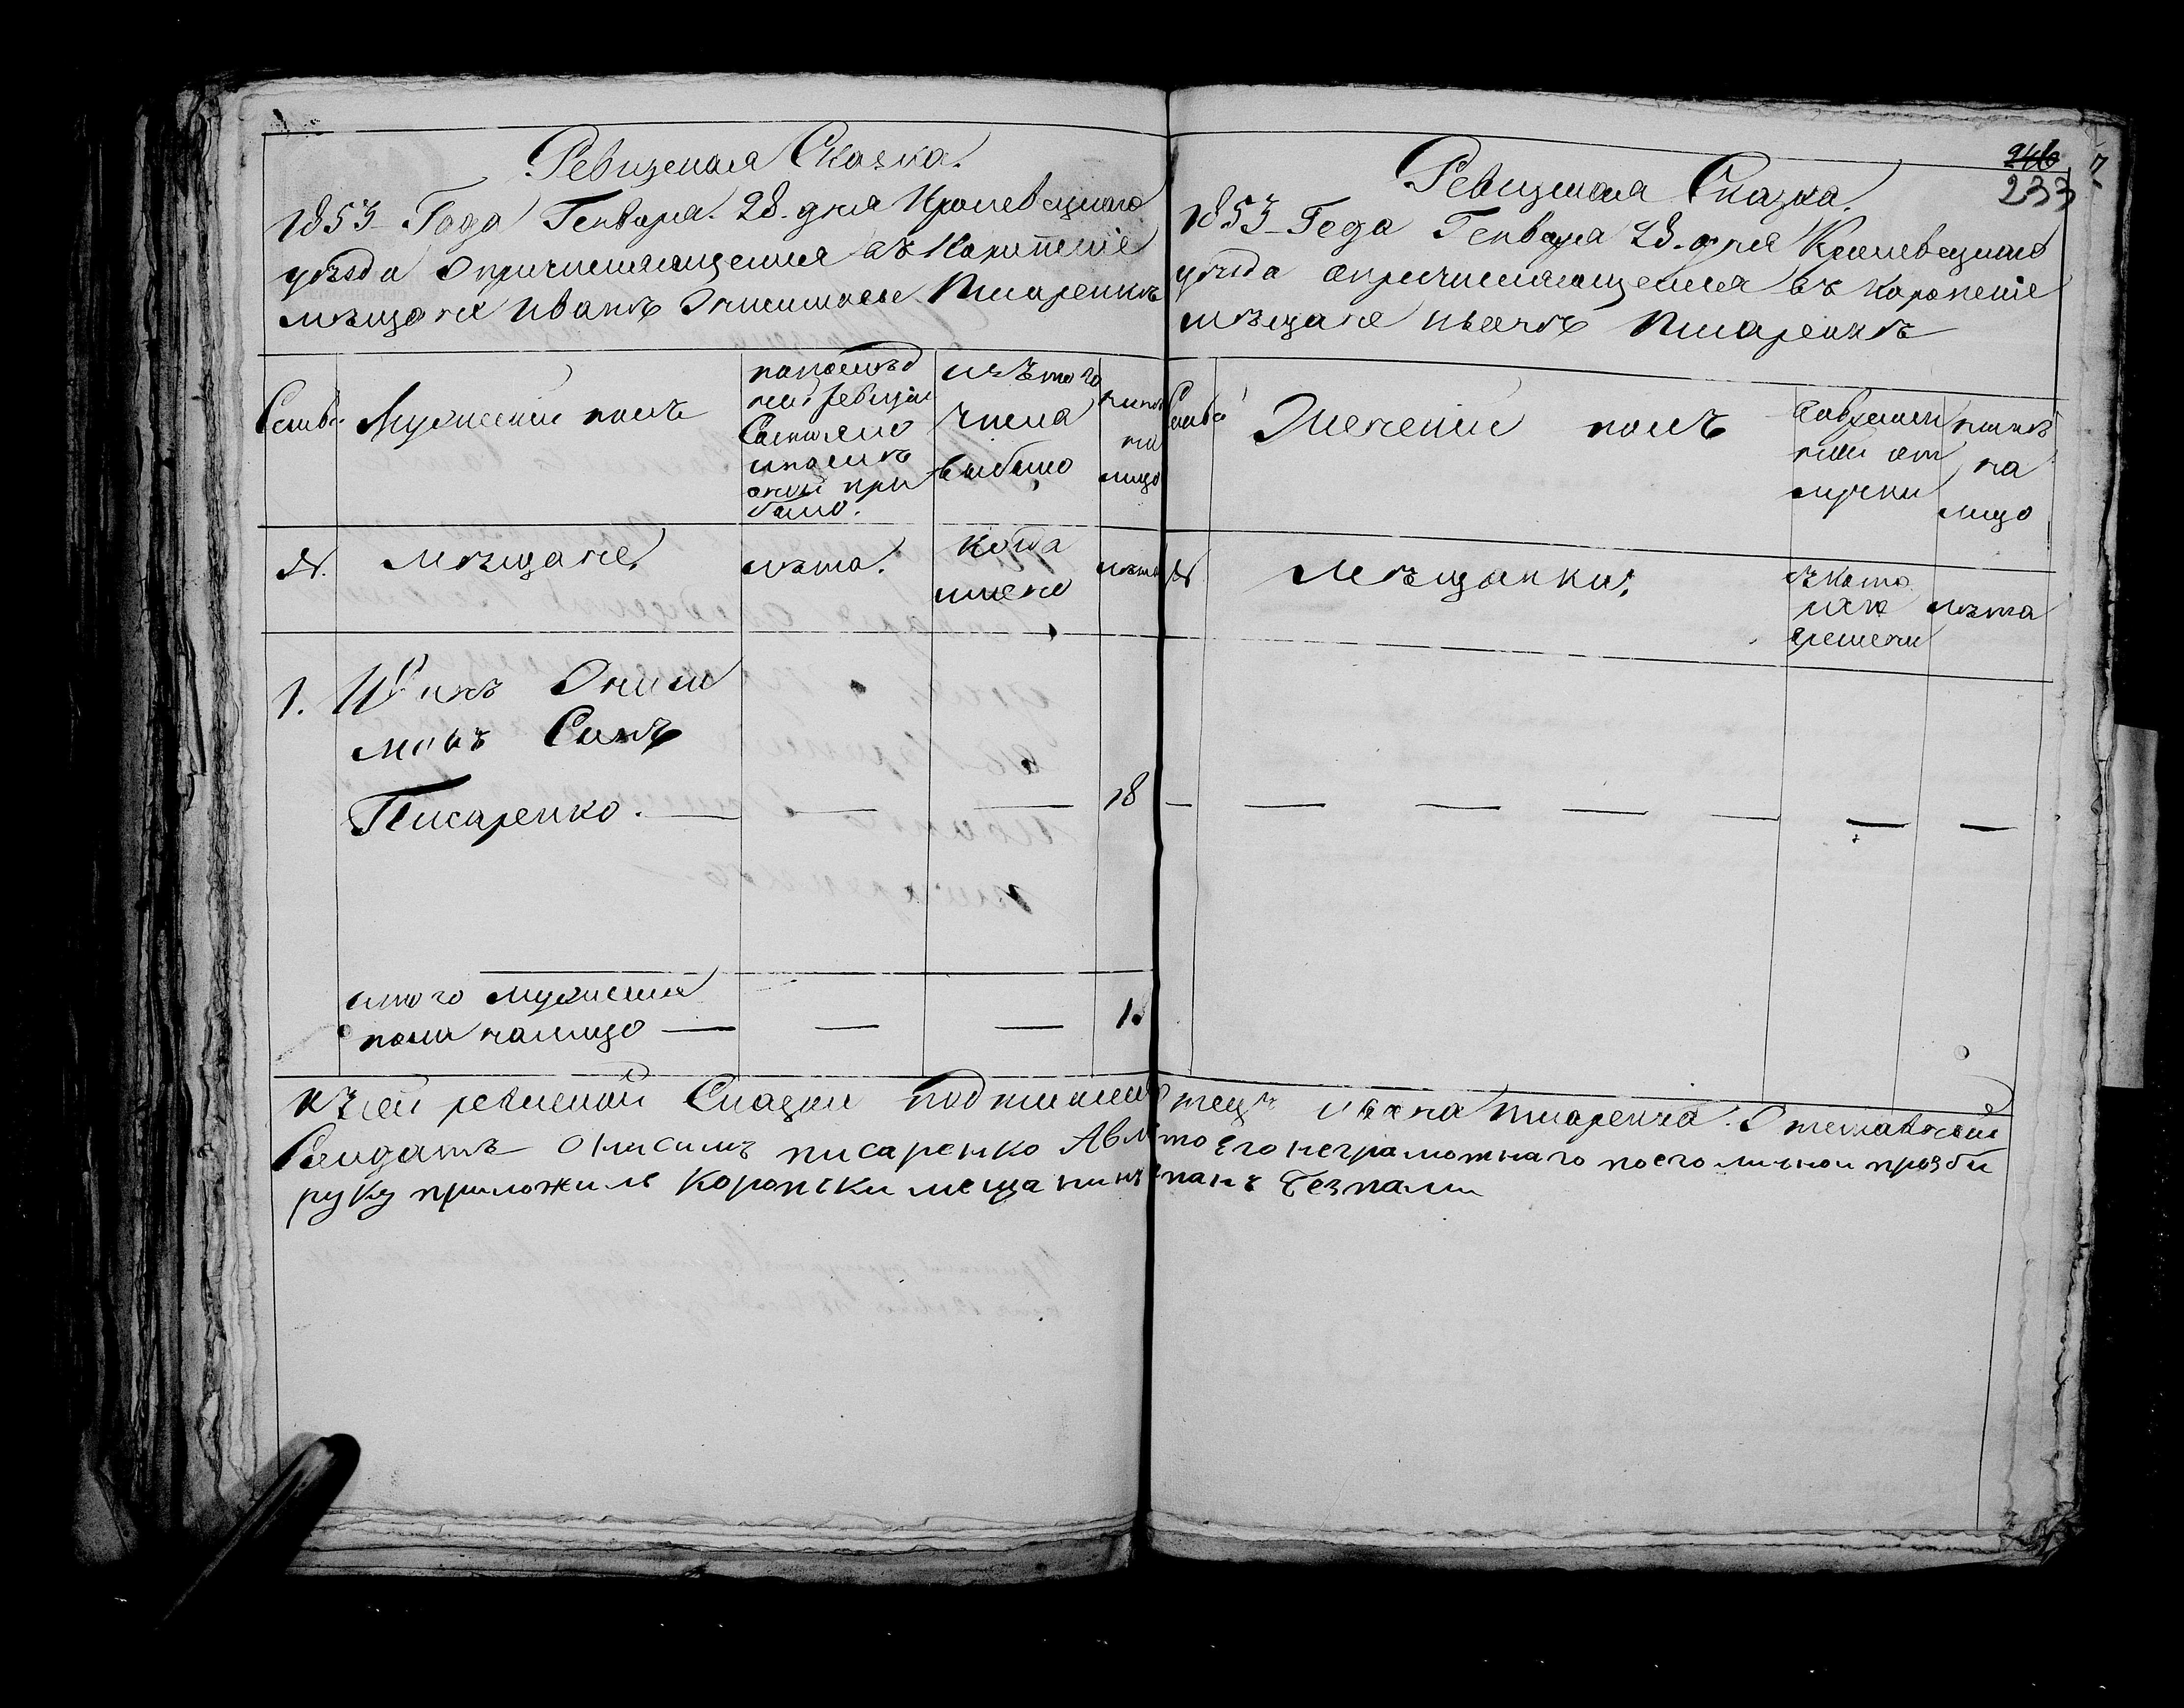 Ревизская Сказка.
1853 Года Генваря 28. дня Кролевецкаго
уѣзда О причисляющемся въ Коропские
мѣщане Иванѣ Онисимове Писаренкѣ
Семьи Мужеский полъ
по последней ревизии Состояло и после оной прибыло.
изъ того числа выбыло
ныне на лицо
№. мѣщане лѣта. Когда именно лѣта
1. Иванъ Ониси
мовъ Сынъ
Писаренко. — — — 18
итого мужеска
пола налицо — — — 1
Ревизская Сказка.
246
233
1853 Года Генваря 28. дня Кролевецкаго
уѣзда о причисляющемся въ Коропские
мѣщане Иванѣ Писаренкѣ
Семьи Женский полъ
во временной отлучки
ныне на лицо
№ Мѣщанки. съ котораго времени лѣта
— — — — — — —
къ сей ревизской Сказки отецъ Ивана Писаренка Отставной
Солдатъ Онисимъ писаренко А вместо его неграмотнаго по его личной прозби
руку приложилъ Коропски мещанинъ Безпали